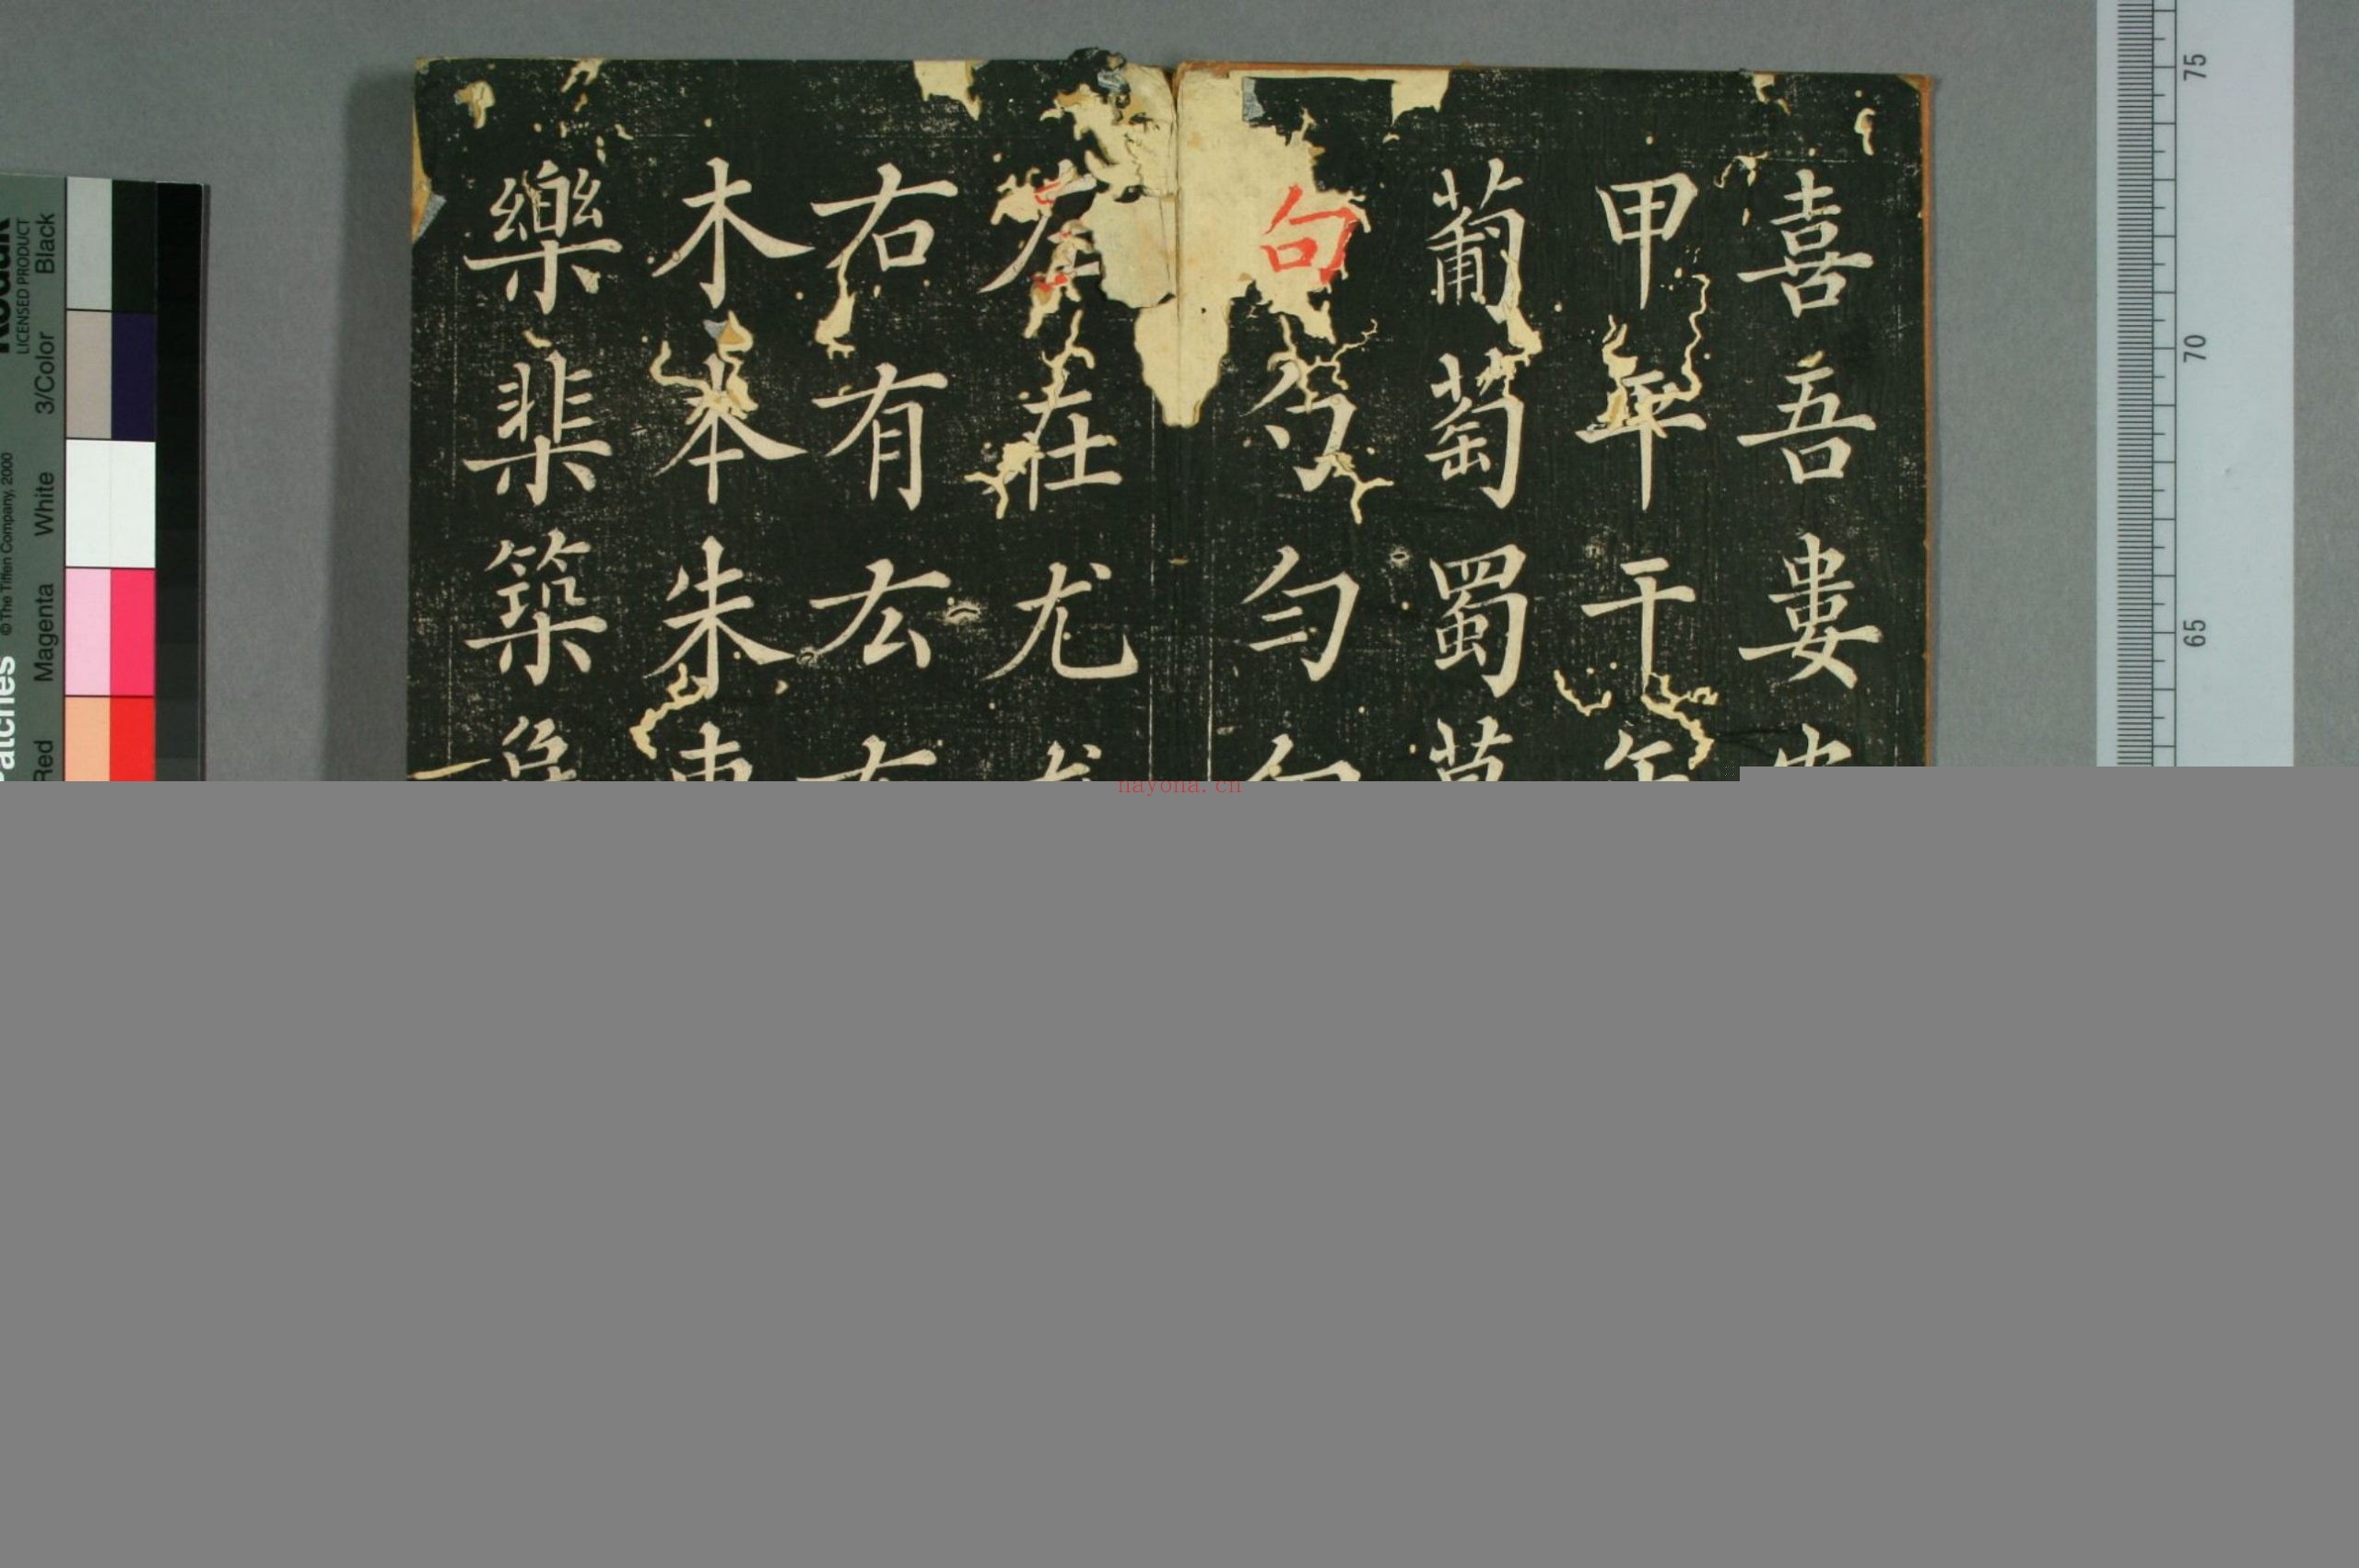 喜吾婁
甲年干
蔔萄蜀
句勺勻
左在尤
右有厷
木本朱
樂棐築
75
70
65
Black
3/Color
White
Magenta
Red
LICENSED PRODUCT
© The Tiffen Company, 2000
nayona.cn